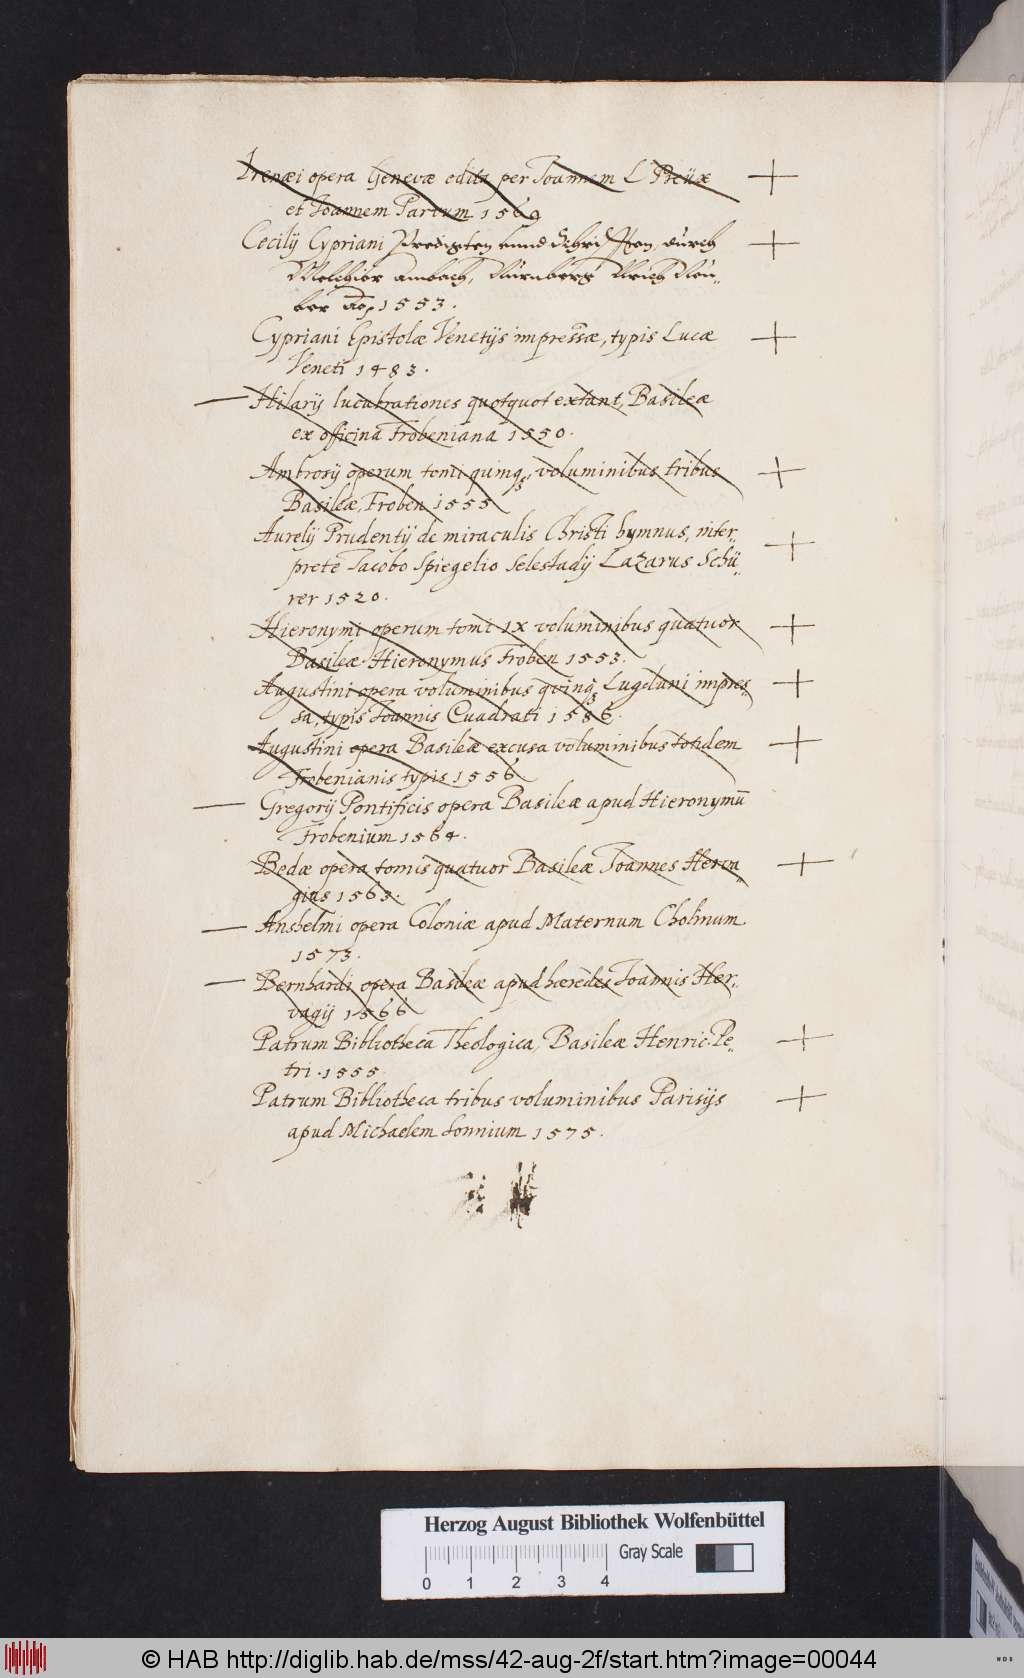 Irenæi opera Genevæ edita per Joannem L Preüx
et Joannem Parvum 1569
Cecilij Cypriani Predigten unnd Schrifften, durch
Melchior Ambach, Nürnberg Ulrich Neu,,
ber Ao, 1553.
Cypriani Epistolæ Venetijs impressæ, typis Lucæ
Veneti 1483.
Hilarij lucubrationes quotquot extant, Basileæ
ex officina Frobeniana 1550.
Ambrosij operum tomi quinq, voluminibus tribus
Basileæ, Froben 1555
Aurelij Prudentij de miraculis Christi hymnus, inter,,
prete Jacobo Spiegelio Selestadij Lazarus Schü,,
rer 1520.
Hieronymi operum tomi IX voluminibus quatuor
Basileæ. Hieronymus Froben 1553.
Augustini opera voluminibus quinq Lugduni impres,,
sa, typis Joannis Cuadrati 1586.
Augustini opera Basileæ excusa voluminibus totidem
Frobenianis typis 1556
Gregorij Pontificis opera Basileæ apud Hieronymū
Frobenium 1564.
Bedæ opera tomis quatuor Basileæ Joannes Herva,,
gius 1563.
Anshelmi opera Coloniæ apud Maternum Cholinum
1573.
Bernhardi opera Basileæ apud hæredes Joannis Her,,
vagij 1566
Patrum Bibliotheca Theologica, Basileæ Henric. Pe,,
tri. 1555.
Patrum Bibliotheca tribus voluminibus Parisijs
apud Michaelem Sonnium 1575.
Herzog August Bibliothek Wolfenbüttel
Gray Scale
0 1 2 3 4
© HAB http://diglib.hab.de/mss/42-aug-2f/start.htm?image=00044